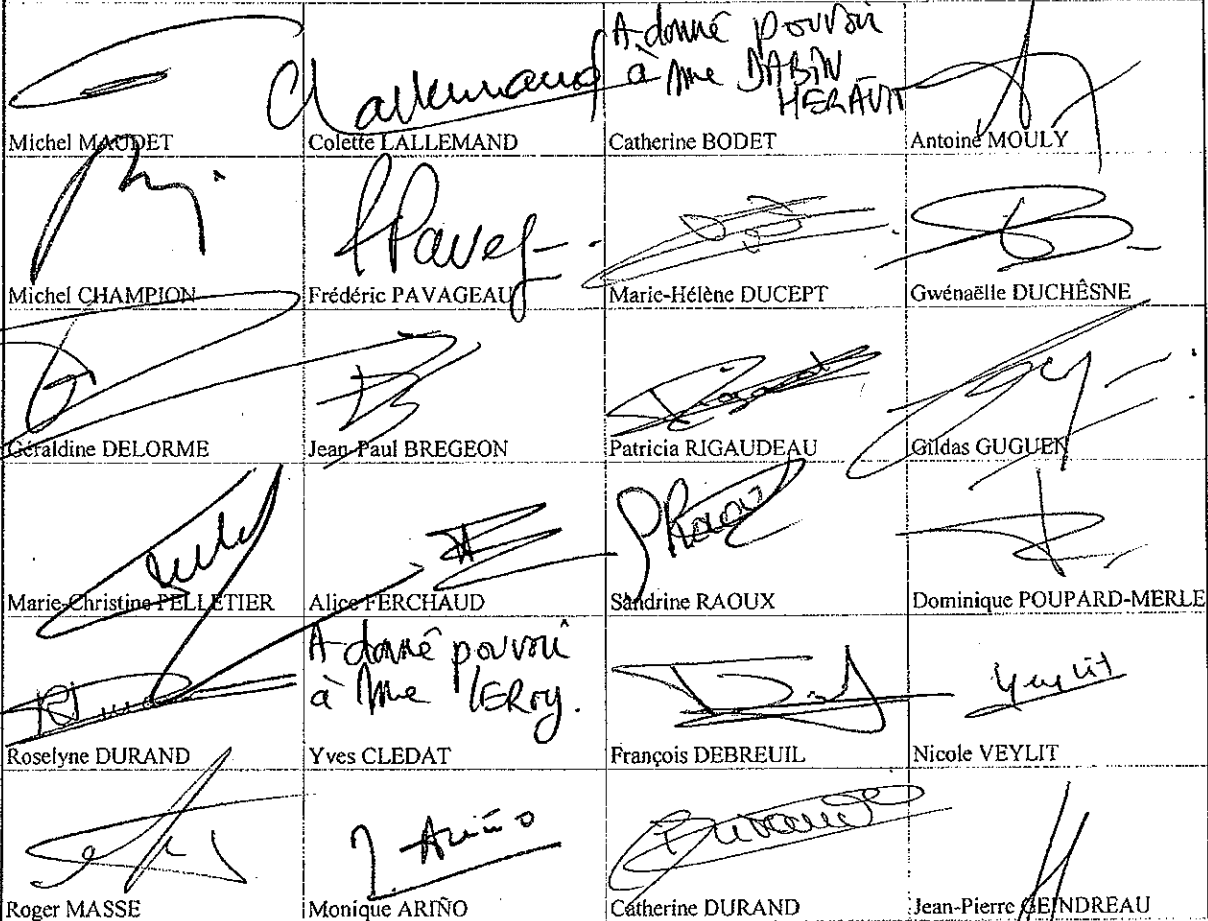 A donné pouvoir
à Mme DABIN
HERAULT
Michel MAUDET
Clallemand
Colette LALLEMAND
Catherine BODET
Antoine MOULY
Michel CHAMPION
Frédéric PAVAGEAU
Marie-Hélène DUCEPT
Gwénaëlle DUCHÊSNE
Géraldine DELORME
Jean-Paul BREGEON
Patricia RIGAUDEAU
Gildas GUGUEN
Marie-Christine PELLETIER
Alice FERCHAUD
SRaoux
Sandrine RAOUX
Dominique POUPARD-MERLE
Roselyne DURAND
A donné pouvoir
à Mme LEROY.
Yves CLEDAT
François DEBREUIL
Nicole VEYLIT
Roger MASSE
Ariño
Monique ARIÑO
Catherine DURAND
Jean-Pierre GEINDREAU